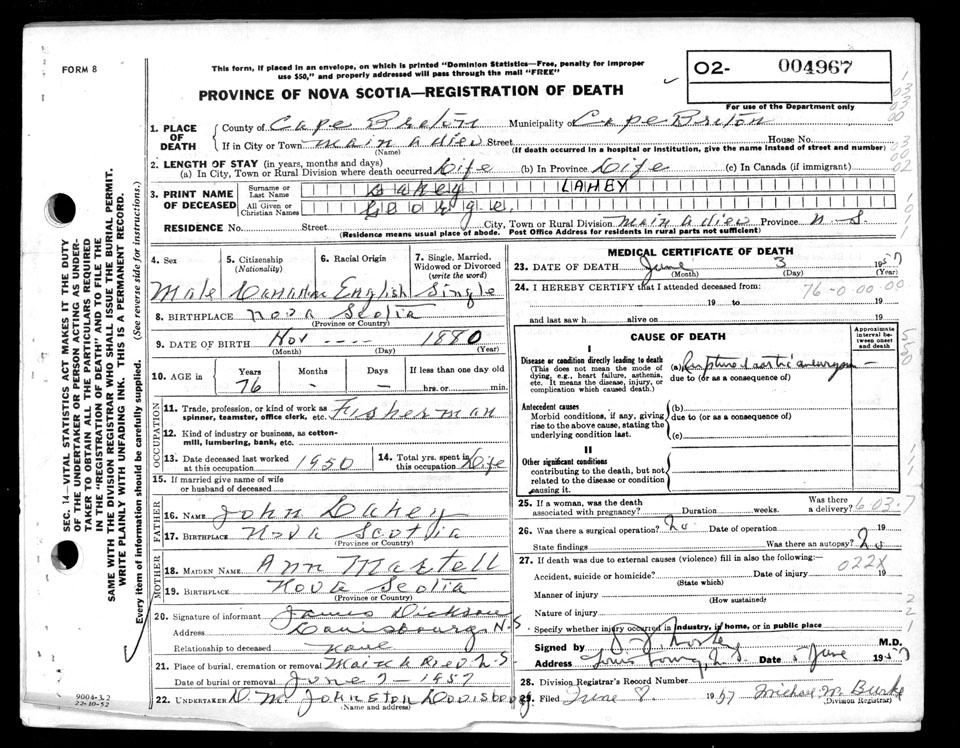 FORM 8
This form, if placed in an envelope, on which is printed "Dominion Statistics—Free, penalty for improper
use $50," and properly addressed will pass through the mail "FREE"
02- 004967
PROVINCE OF NOVA SCOTIA—REGISTRATION OF DEATH
For use of the Department only
1. PLACE OF DEATH
County of Cape Breton Municipality of Cape Breton
If in City or Town Main a dieu Street House No.
(Name) (If death occurred in a hospital or institution, give the name instead of street and number)
2. LENGTH OF STAY (in years, months and days)
(a) In City, Town or Rural Division where death occurred Life (b) In Province Life (c) In Canada (if immigrant)
3. PRINT NAME OF DECEASED
Surname or Last Name Lahey LAHEY
All Given or Christian Names George
RESIDENCE No. Street City, Town or Rural Division Main a dieu Province N-S.
(Residence means usual place of abode. Post Office Address for residents in rural parts not sufficient)
4. Sex 5. Citizenship (Nationality) 6. Racial Origin 7. Single, Married, Widowed or Divorced (write the word)
Male Canadian English Single
8. BIRTHPLACE Nova Scotia
(Province or Country)
9. DATE OF BIRTH Nov ---- 1880
(Month) (Day) (Year)
10. AGE in Years Months Days If less than one day old
76 - - hrs. or min.
OCCUPATION
11. Trade, profession, or kind of work as spinner, teamster, office clerk, etc. Fisherman
12. Kind of industry or business, as cotton-mill, lumbering, bank, etc.
13. Date deceased last worked at this occupation 1950 14. Total yrs. spent in this occupation Life
15. If married give name of wife or husband of deceased
FATHER
16. NAME John Lahey
17. BIRTHPLACE Nova Scotia
(Province or Country)
MOTHER
18. MAIDEN NAME Ann Martell
19. BIRTHPLACE Nova Scotia
(Province or Country)
20. Signature of informant James Dickson
Address Louisbourg N.S
Relationship to deceased None
21. Place of burial, cremation or removal
Date of burial or removal June 7-1957
22. UNDERTAKER D. M. Johnston Louisbourg
(Name and address)
MEDICAL CERTIFICATE OF DEATH
23. DATE OF DEATH June 3 1957
(Month) (Day) (Year)
24. I HEREBY CERTIFY that I attended deceased from: 76-0 00 00
19 to 19
and last saw h alive on 19
CAUSE OF DEATH
Approximate interval between onset and death
I
Disease or condition directly leading to death (a) Rupture aortic aneurysm
(This does not mean the mode of dying, e.g., heart failure, asthenia, etc. It means the disease, injury, or complication which caused death.)
due to (or as a consequence of)
Antecedent causes (b)
Morbid conditions, if any, giving rise to the above cause, stating the underlying condition last.
due to (or as a consequence of)
(c)
II
Other significant conditions
contributing to the death, but not related to the disease or condition causing it.
25. If a woman, was the death associated with pregnancy? Duration weeks. Was there a delivery? 6-03-7
26. Was there a surgical operation? No Date of operation 19
State findings Was there an autopsy? No
27. If death was due to external causes (violence) fill in also the following:
022X
Accident, suicide or homicide? Date of injury 19
(State which)
Manner of injury
(How sustained)
Nature of injury
Specify whether injury occurred in industry, in home, or in public place
Signed by M.D.
Address Date 5 June 1957
28. Division Registrar's Record Number
29. Filed June 8 1957 Michael M. Burke
(Division Registrar)
SEC. 14—VITAL STATISTICS ACT MAKES IT THE DUTY
OF THE UNDERTAKER OR PERSON ACTING AS UNDER-
TAKER TO OBTAIN ALL THE PARTICULARS REQUIRED
IN THE "REGISTRATION OF DEATH" AND TO FILE THE
SAME WITH THE DIVISION REGISTRAR WHO SHALL ISSUE THE BURIAL PERMIT.
WRITE PLAINLY WITH UNFADING INK. THIS IS A PERMANENT RECORD.
Every item of information should be carefully supplied. (See reverse side for instructions.)
9004-3.2
22-10-52